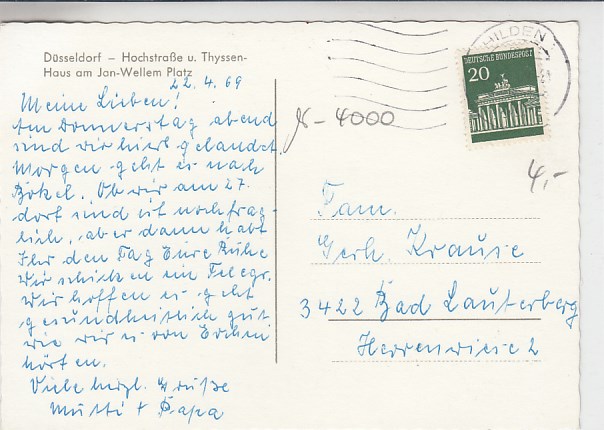 Düsseldorf – Hochstraße u. Thyssen-
Haus am Jan-Wellem Platz
22.4.69
Meine Lieben!
Am Donnerstag abend
sind wir hier gelandet.
Morgen geht es nach
Ob wir am 27.
dort sind ist noch frag-
lich, aber dann habt
Ihr den Tag Eure Ruhe
Wir schicken ein Telegr.
Wir hoffen es geht
gesundheitlich gut
wie wir es von
hörten.
Viele herzl. Grüße
Mutti + Papa
HILDEN
DEUTSCHE BUNDESPOST
20
-4000
4,-
Fam.
Gerh. Krause
3422 Bad Lauterberg
Herrenwiese 2